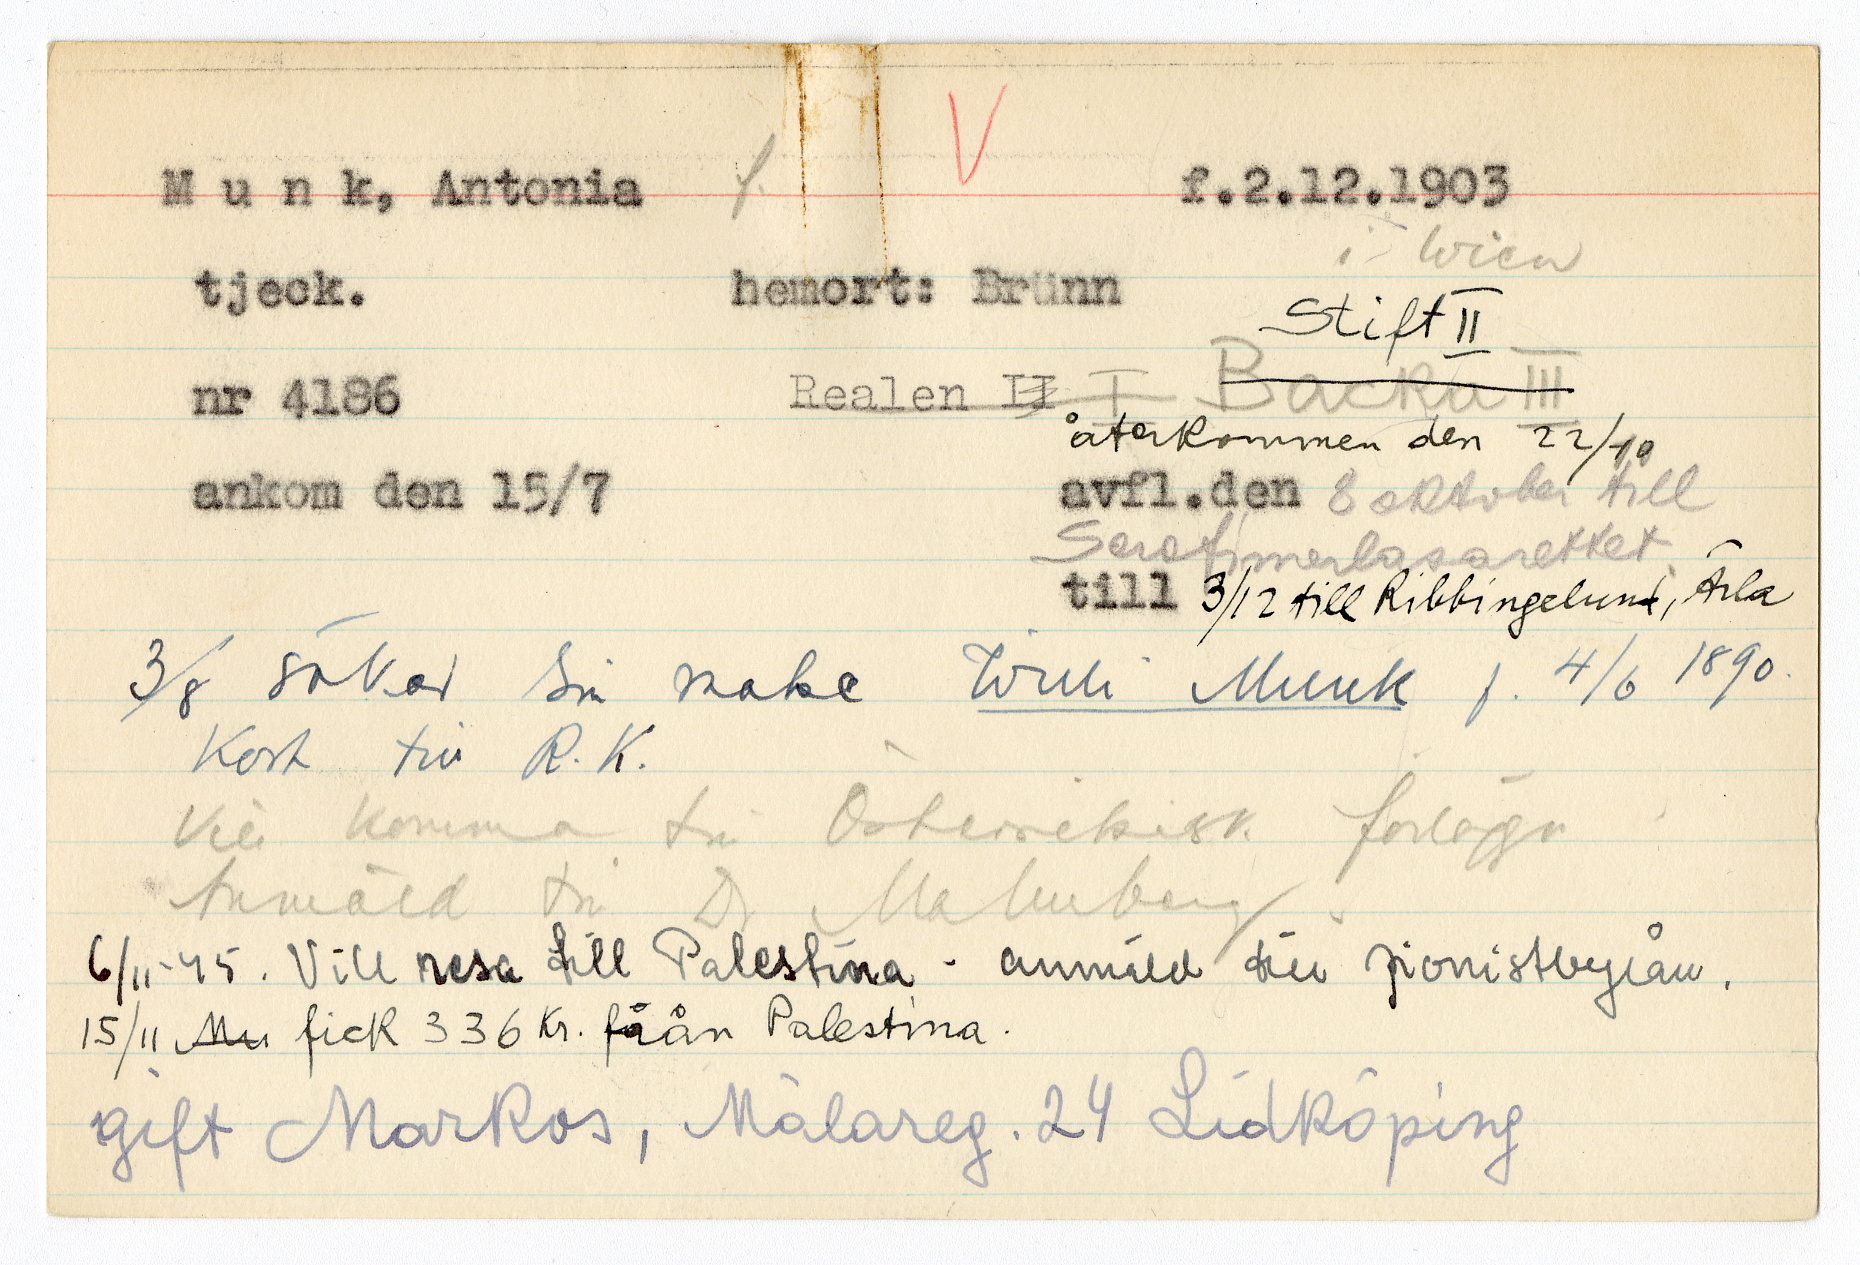 V
M u n k, Antonia f. f.2.12.1903
i Wien
tjeck. hemort: Brünn
Stift II
nr 4186 Realen II I Backa III
återkommen den 22/10
ankom den 15/7 avfl.den 8 oktober till
Serafimerlasarettet.
till 3/12 till Ribbingelund, Ärla
3/8 söker sin make Willi Munk f. 4/6 1890.
Kort till R.K.
Vill komma till Österrikisk förläggn
Anmäld till Dr Malmberg.
6/11-45. Vill resa till Palestina - anmäld till zionistbyrån.
15/11 fick 336 Kr. från Palestina.
gift Markos, Mälareg. 24 Lidköping